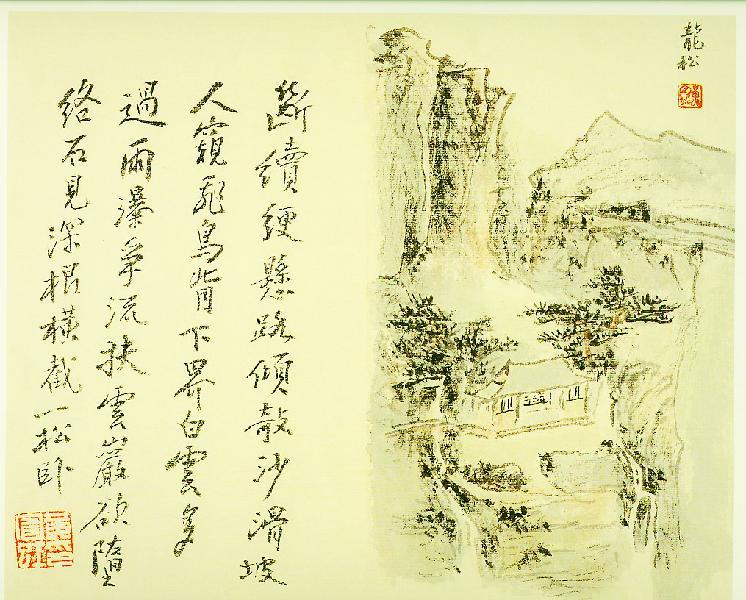 龍松
斷續綆懸路傾敧沙滑坡
人窺飛鳥背下界白雲多
過雨瀑爭流扶雲巖欲墮
絡石見深根橫截一松卧